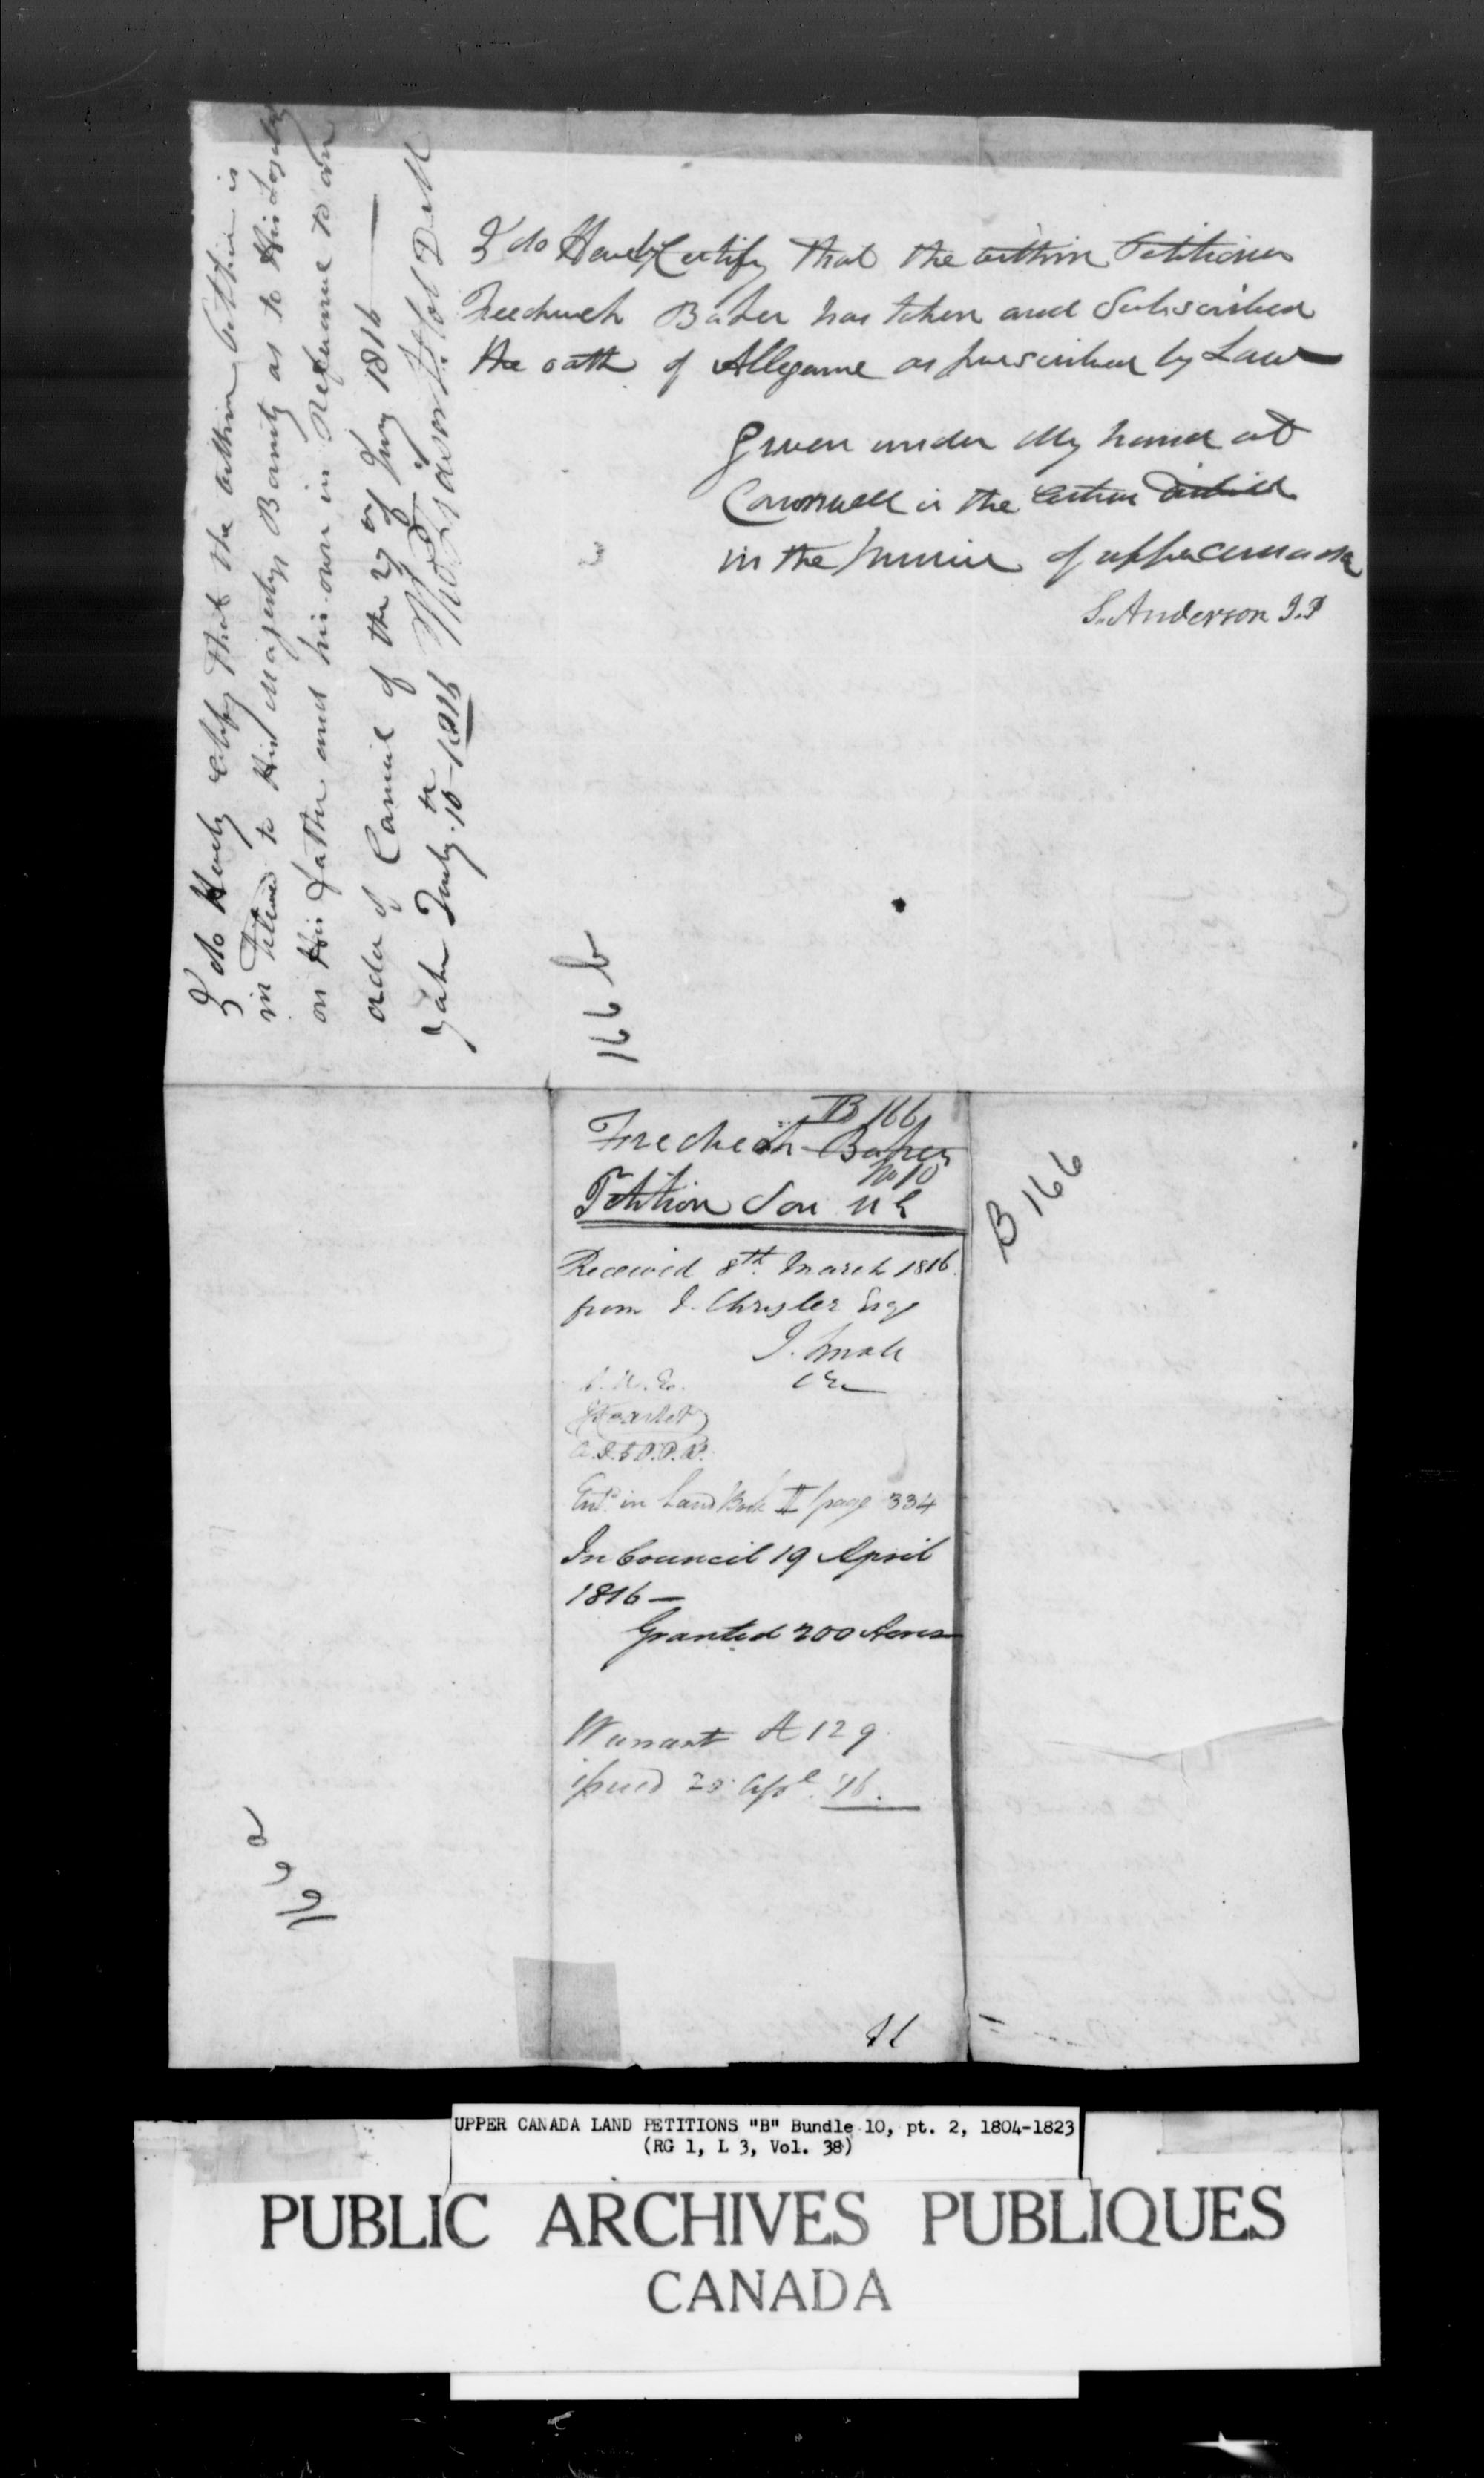 I do Hereby Certify that the within Petitioner
Baker has taken and Subscribed
the oath of Allegance as prescribed by Law
Given under My hand at
Cornwall in the Eastern District
in the of upper Canada
S. Anderson J.P
I do Hereby Certify that the within Petitioner is
in to His Majestys Bounty as to His Loyalty
on His father and his own in Referance to an
order of Council of the 27 of 1816
10th 1816
166 b
B 166
Baker
No 10
Petition Son U E
Received 8th March 1816
from J. Chrysler Esqr
J. Small
Entd in Land Book page 334
In Council 19 April
1816 —
Granted 200 Acres
Warrant A 129
issued 20 Apl. 16.
B 166
166 a
UPPER CANADA LAND PETITIONS "B" Bundle 10, pt. 2, 1804-1823
(RG 1, L 3, Vol. 38)
PUBLIC ARCHIVES PUBLIQUES
CANADA